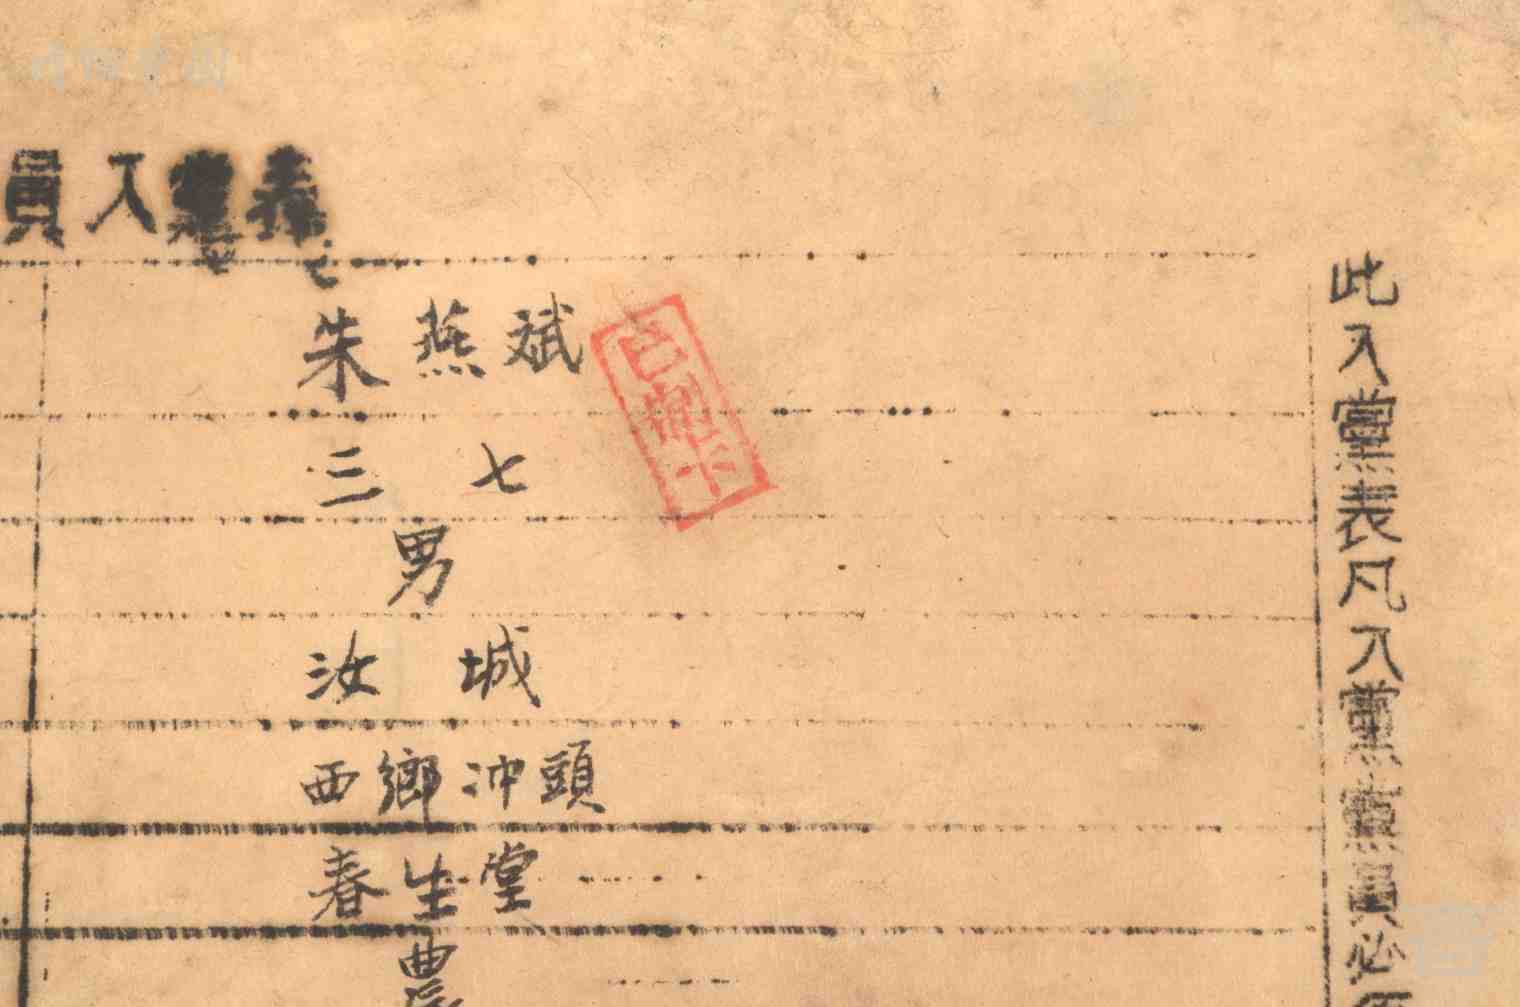 員入黨表
朱燕斌
三七
男
汝城
西鄉沖頭
春生堂
農
此入黨表凡入黨黨員必